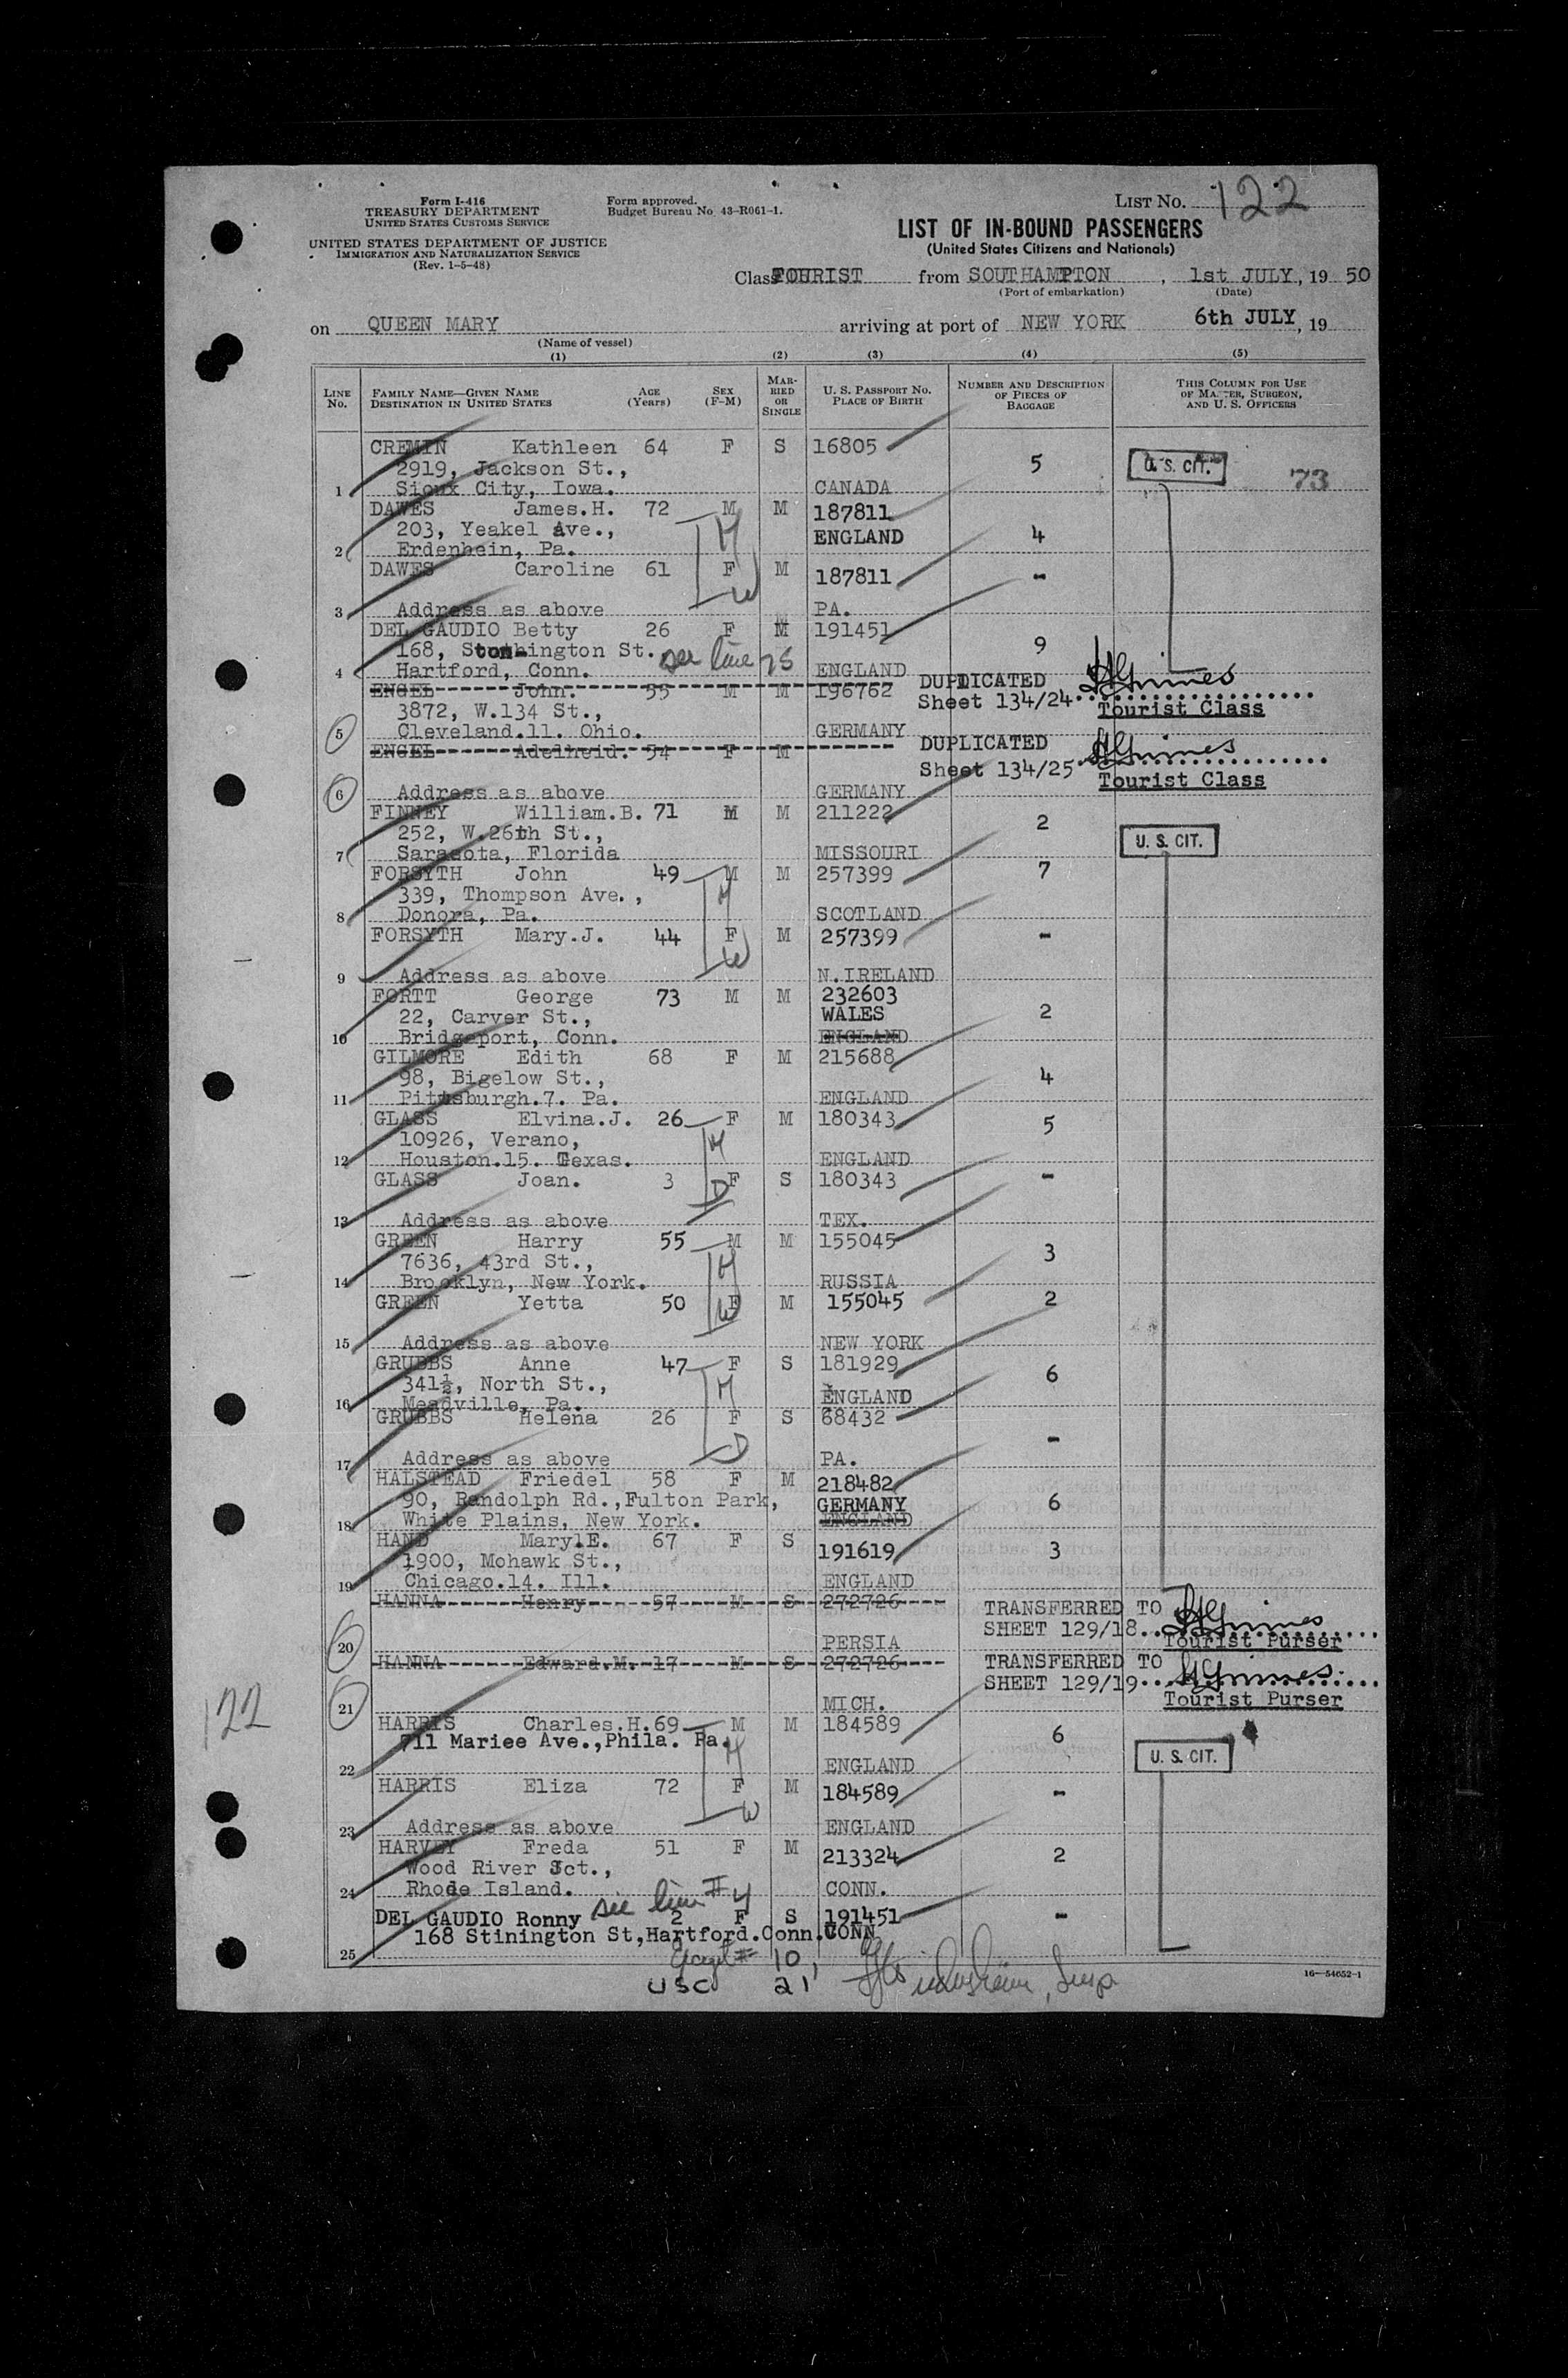 Form I-416
TREASURY DEPARTMENT
UNITED STATES CUSTOMS SERVICE
UNITED STATES DEPARTMENT OF JUSTICE
IMMIGRATION AND NATURALIZATION SERVICE
(Rev. 1-5-48)
Form approved.
Budget Bureau No. 43-R061-1.
LIST NO. 122
LIST OF IN-BOUND PASSENGERS
(United States Citizens and Nationals)
Class TOURIST from SOUTHAMPTON, 1st JULY, 19 50
(Port of embarkation) (Date)
on QUEEN MARY arriving at port of NEW YORK 6th JULY, 19
(Name of vessel)
(1) (2) (3) (4) (5)
LINE NO. FAMILY NAME—GIVEN NAME DESTINATION IN UNITED STATES AGE (Years) SEX (F-M) MARRIED OR SINGLE U. S. PASSPORT NO. PLACE OF BIRTH NUMBER AND DESCRIPTION OF PIECES OF BAGGAGE THIS COLUMN FOR USE OF MASTER, SURGEON, AND U. S. OFFICERS
CREMIN Kathleen 64 F S 16805
2919, Jackson St., 5 U. S. CIT. 73
1 Sioux City, Iowa. CANADA
DAWES James.H. 72 M M 187811
203, Yeakel Ave., ENGLAND 4
2 Erdenhein, Pa.
DAWES Caroline 61 F M 187811 -
3 Address as above PA.
DEL GAUDIO Betty 26 F M 191451
168, Stonington St. see line 25 9
4 Hartford, Conn. ENGLAND
ENGEL John. 55 M M 196762 DUPLICATED
3872, W.134 St., Sheet 134/24 Tourist Class
5 Cleveland.11. Ohio. GERMANY
ENGEL Adelheid. 54 F M DUPLICATED
Sheet 134/25 Tourist Class
6 Address as above GERMANY
FINNEY William.B. 71 M M 211222
252, W.26th St., 2 U. S. CIT.
7 Sarasota, Florida MISSOURI
FORSYTH John 49 M M 257399 7
339, Thompson Ave.,
8 Donora, Pa. SCOTLAND
FORSYTH Mary.J. 44 F M 257399 -
9 Address as above N.IRELAND
FORTT George 73 M M 232603
22, Carver St., WALES 2
10 Bridgeport, Conn. ENGLAND
GILMORE Edith 68 F M 215688
98, Bigelow St., 4
11 Pittsburgh.7. Pa. ENGLAND
GLASS Elvina.J. 26 F M 180343 5
10926, Verano,
12 Houston.15. Texas. ENGLAND
GLASS Joan. 3 F S 180343 -
13 Address as above TEX.
GREEN Harry 55 M M 155045
7636, 43rd St., 3
14 Brooklyn, New York. RUSSIA
GREEN Yetta 50 F M 155045 2
15 Address as above NEW YORK
GRUBBS Anne 47 F S 181929
341½, North St., 6
16 Meadville, Pa. ENGLAND
GRUBBS Helena 26 F S 68432
-
17 Address as above PA.
HALSTEAD Friedel 58 F M 218482
90, Randolph Rd.,Fulton Park, GERMANY 6
18 White Plains, New York. ENGLAND
HAND Mary.E. 67 F S 191619 3
1900, Mohawk St.,
19 Chicago.14. Ill. ENGLAND
HANNA Henry 57 M S 272726 TRANSFERRED TO
SHEET 129/18
20 PERSIA Tourist Purser
HANNA Edward.M. 17 M S 272726 TRANSFERRED TO
SHEET 129/19
21 MICH. Tourist Purser
122
HARRIS Charles.H. 69 M M 184589 6
711 Mariee Ave.,Phila. Pa. U. S. CIT.
22 ENGLAND
HARRIS Eliza 72 F M 184589 -
23 Address as above ENGLAND
HARVEY Freda 51 F M 213324 2
Wood River Jct.,
24 Rhode Island. CONN.
see line # 4
DEL GAUDIO Ronny 2 F S 191451 -
168 Stinington St,Hartford.Conn. CONN
25
# 10,
USC 21
16—54652-1